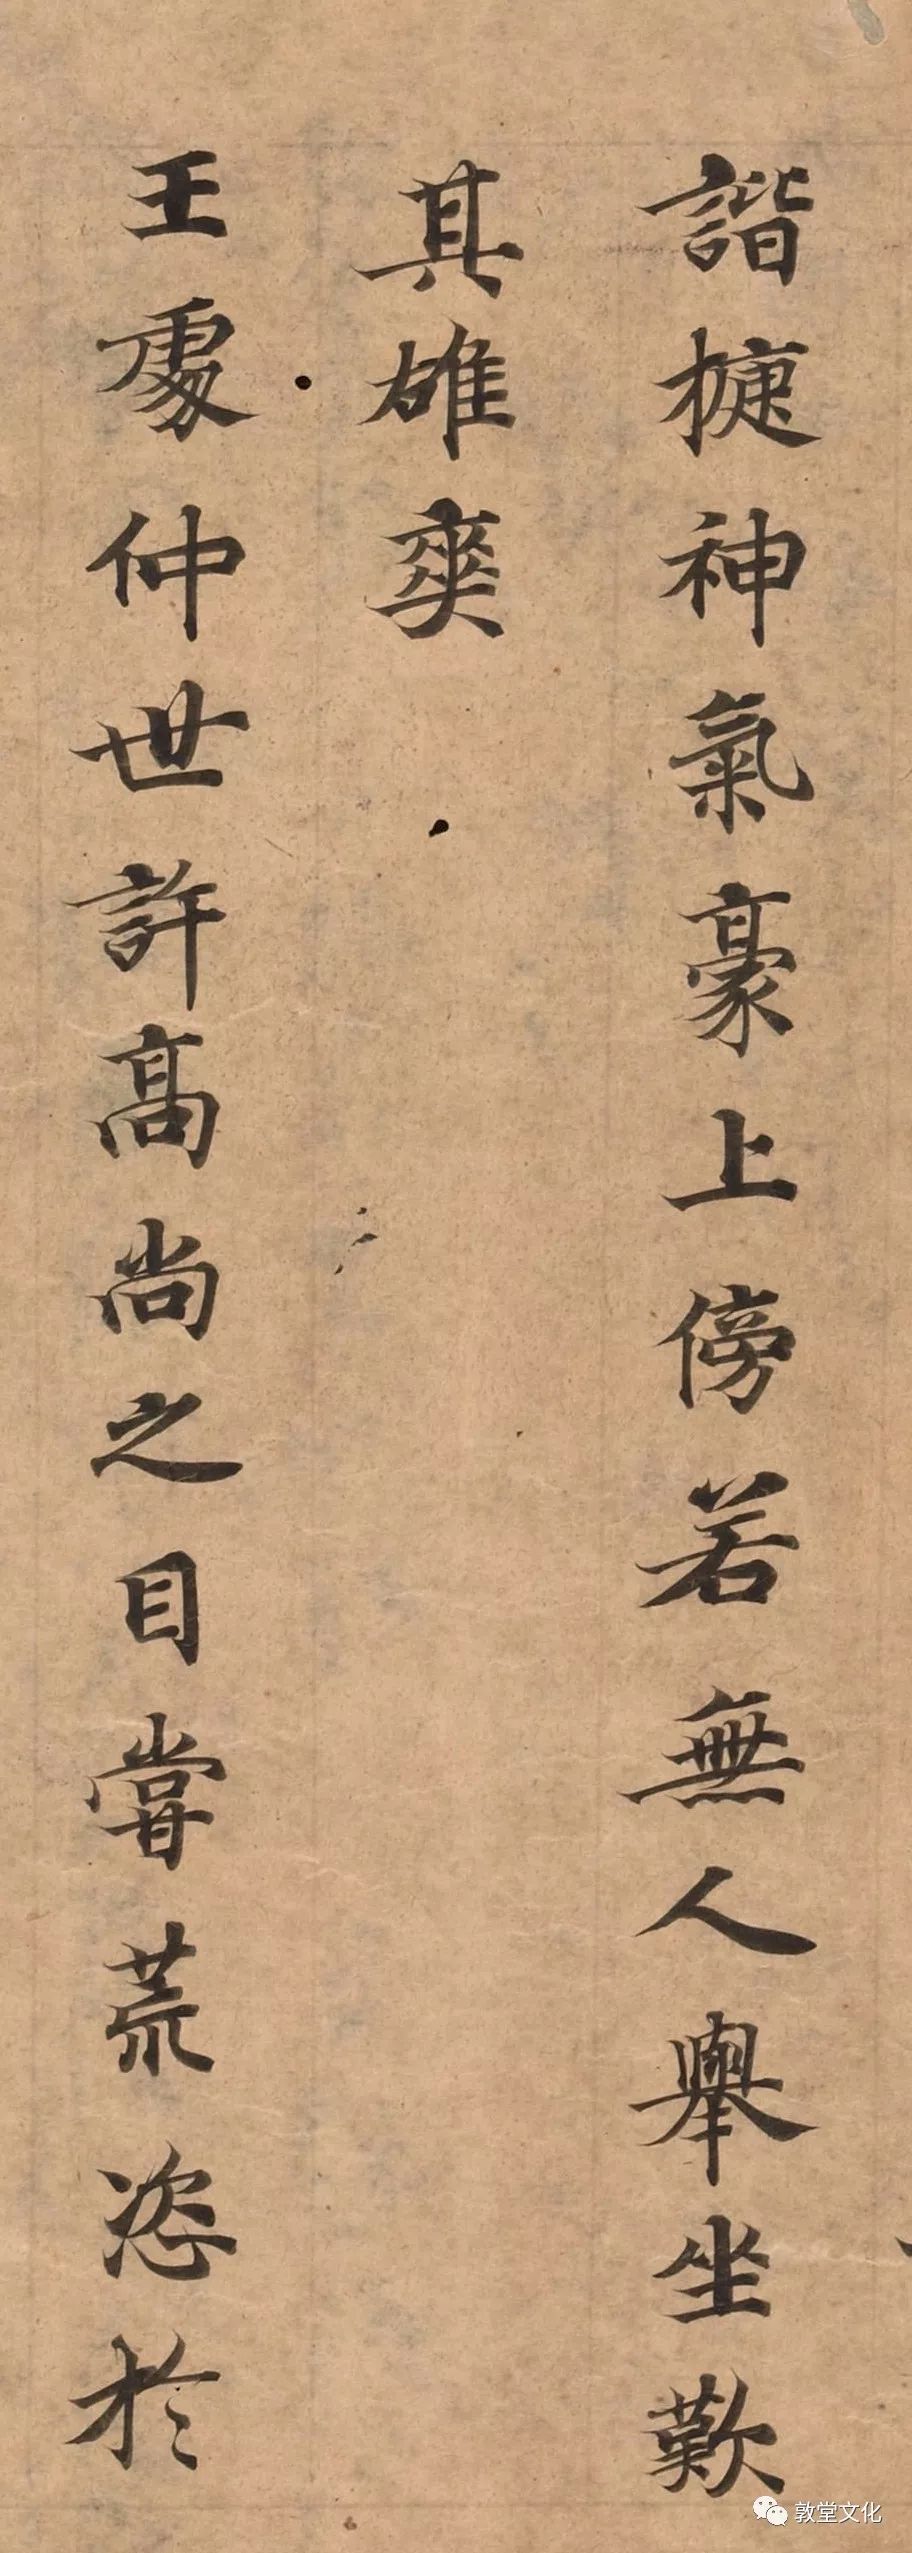 諧捷神氣豪上傍若無人舉坐歎
其雄爽
王處仲世許高尚之目嘗荒恣於
敦堂文化